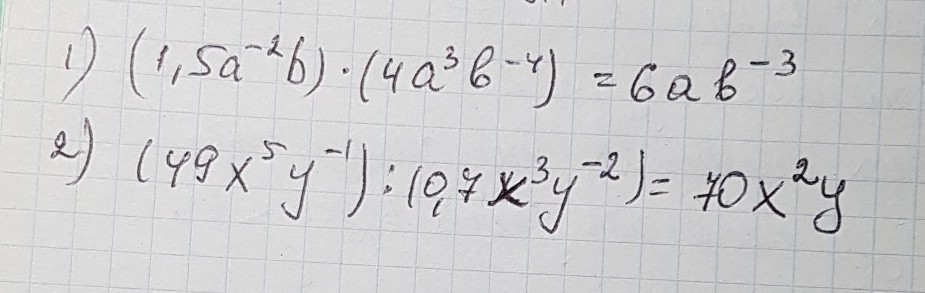 1) (1,5a⁻²b)·(4a³b⁻⁴) = 6ab⁻³
2) (49x⁵y⁻¹):(0,7x³y⁻²) = 70x²y